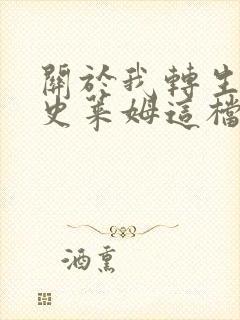 關於我轉生
史萊姆這檔
酒熏